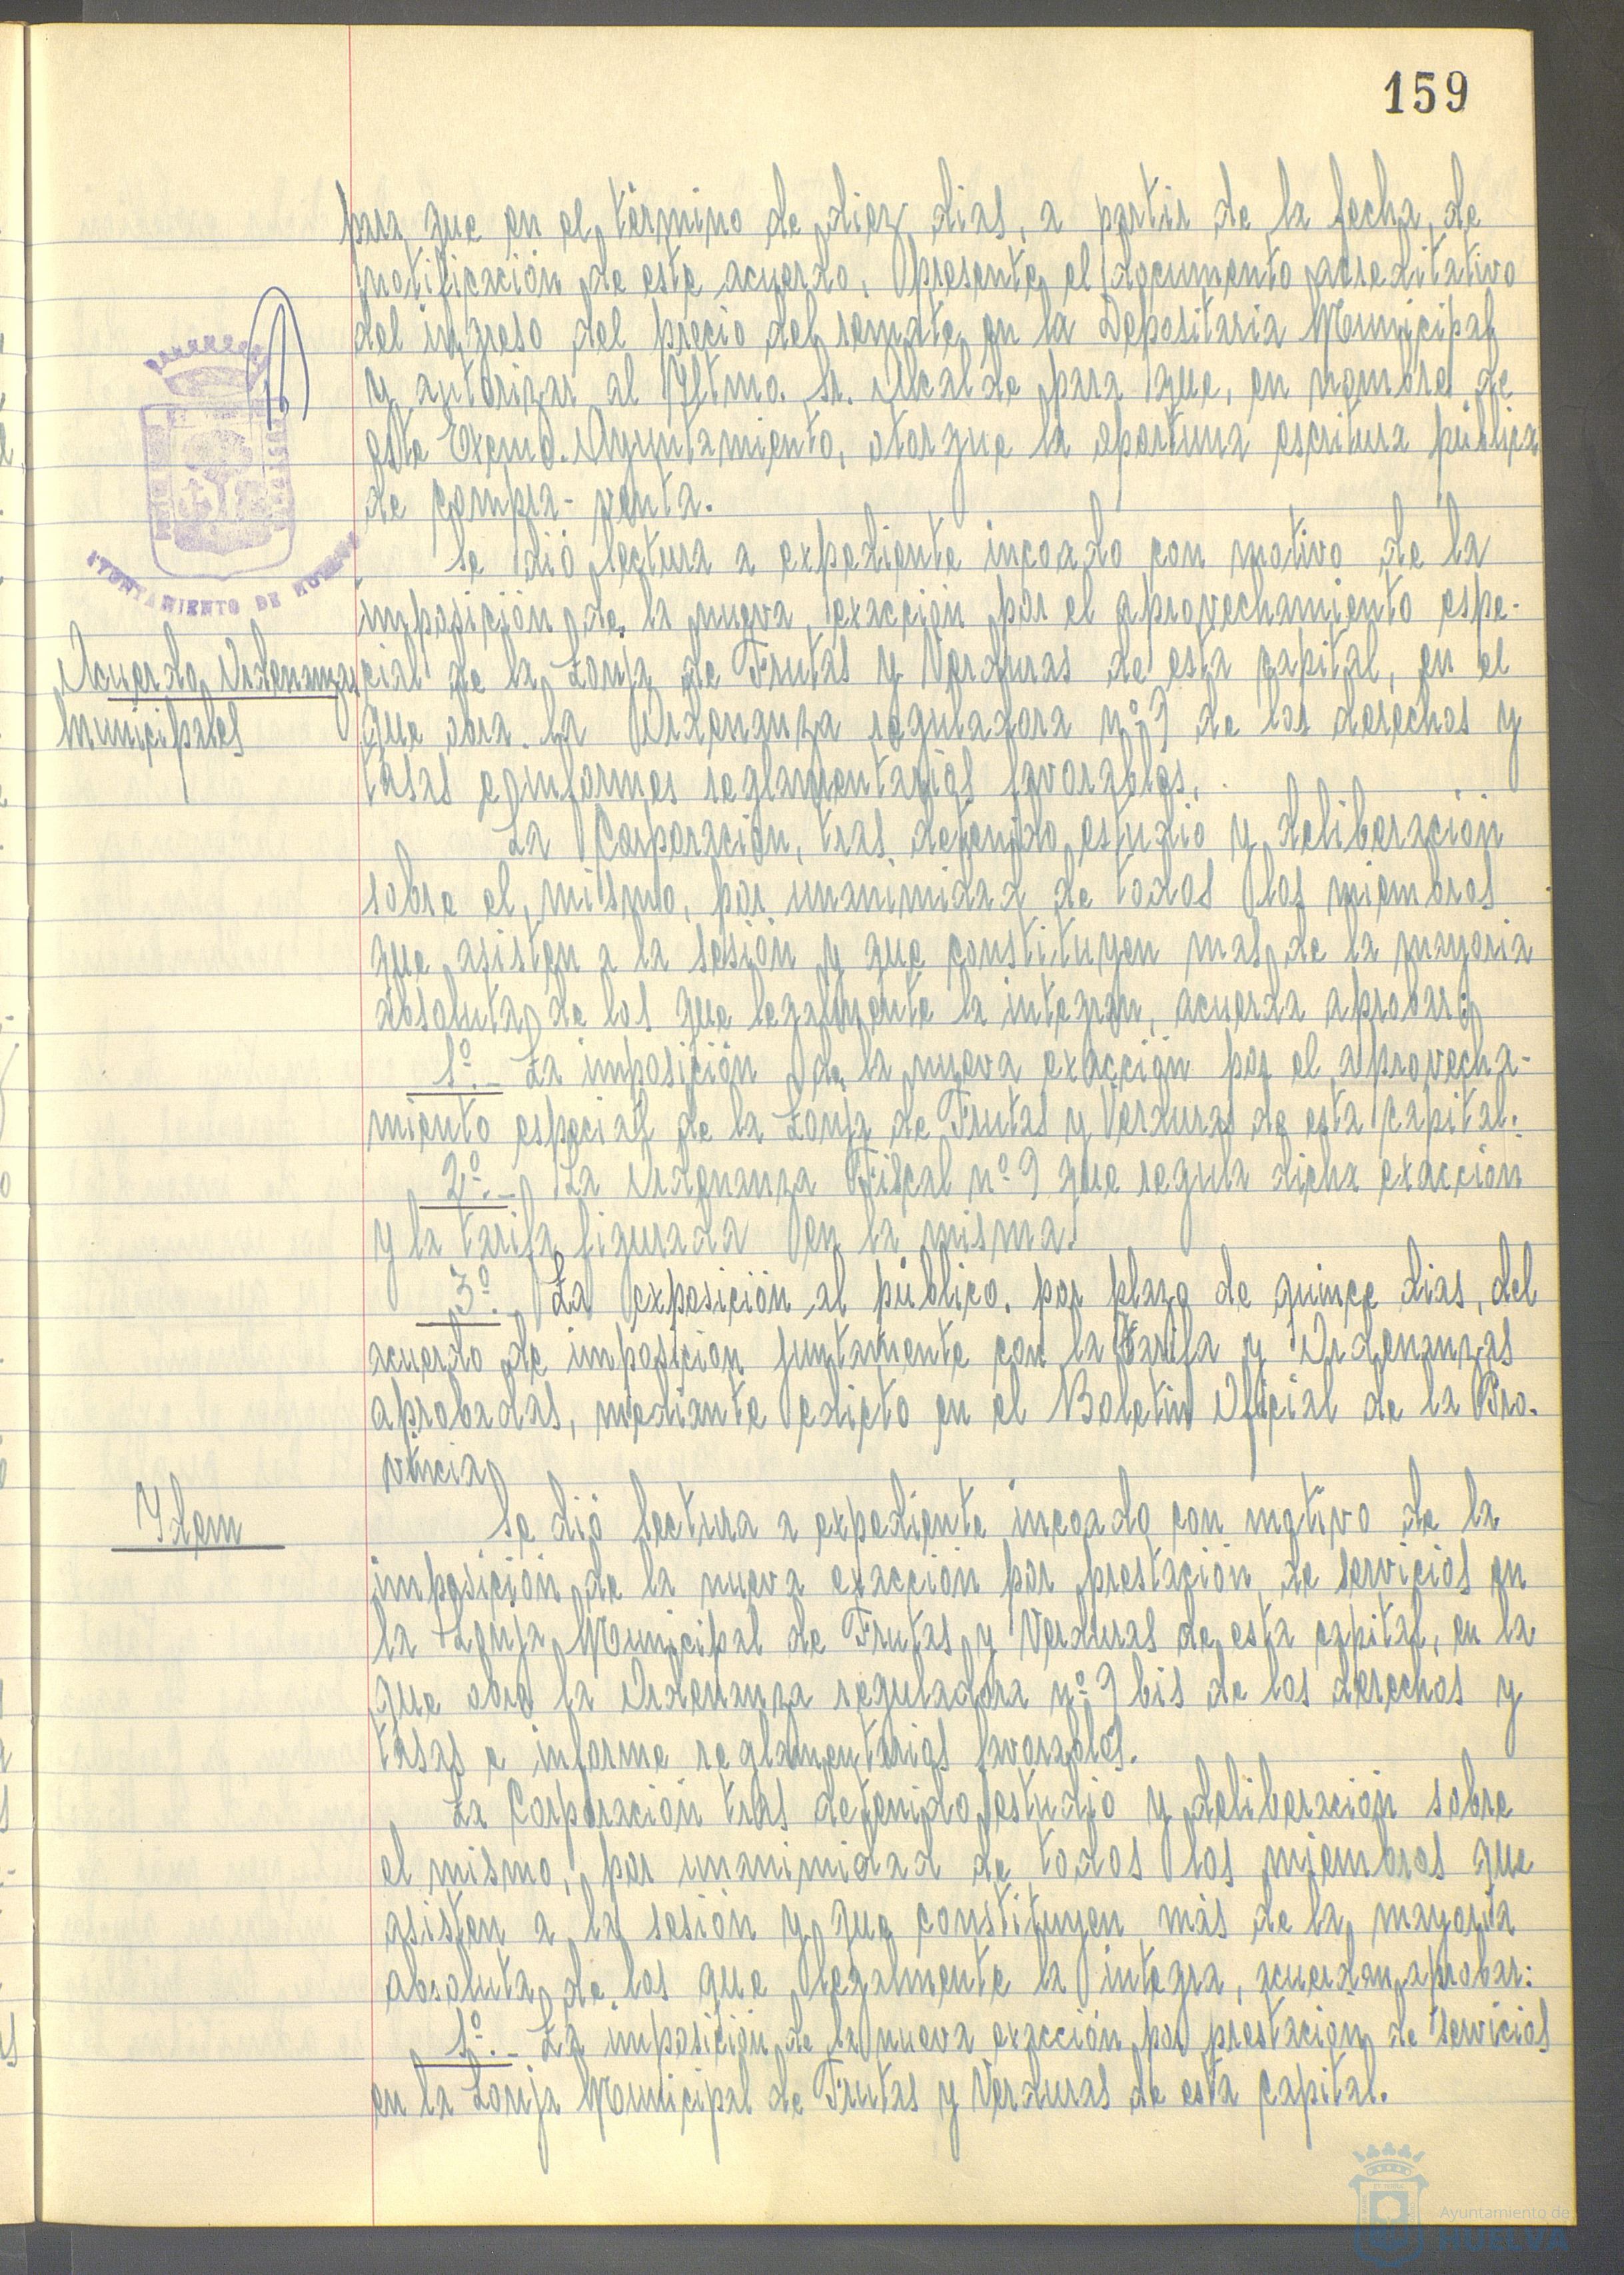 159
para que en el término de diez dias, a partir de la fecha de
notificación de este acuerdo, presente el documento acreditativo
del ingreso del precio del remate en la Depositaria Municipal
y autorizar al Iltmo. Sr. Alcalde para que, en nombre de
este Excmo. Ayuntamiento, otorgue la oportuna escritura pública
de compra-venta.
Se dió lectura a expediente incoado con motivo de la
imposición de la nueva exacción por el aprovechamiento espe-
AYUNTAMIENTO DE HUELVA
Acuerdo Ordenanzas
Municipales
cial de la Lonja de Frutas y Verduras de esta capital, en el
que obra la Ordenanza reguladora nº 9 de los derechos y
tasas e informes reglamentarios favorables.
La Corporación, tras detenido estudio y deliberación
sobre el mismo, por unanimidad de todos los miembros
que asisten a la sesión y que constituyen mas de la mayoria
absoluta de los que legalmente la integran, acuerda aprobar:
1º.- La imposición de la nueva exacción por el aprovecha-
miento especial de la Lonja de Frutas y Verduras de esta capital.
2º.- La Ordenanza Fiscal nº 9 que regula dicha exacción
y la tarifa figurada en la misma.
3º.- La exposición al público, por plazo de quince dias, del
acuerdo de imposicion juntamente con la Tarifa y Ordenanzas
aprobadas, mediante edicto en el Boletin Oficial de la Pro-
vincia.
Idem
Se dió lectura a expediente incoado con motivo de la
imposición de la nueva exacción por prestación de servicios en
la Lonja Municipal de Frutas y Verduras de esta capital, en la
que obra la Ordenanza reguladora nº 9 bis de los derechos y
tasas e informe reglamentarios favorables.
La Corporación tras detenido estudio y deliberación sobre
el mismo, por unanimidad de todos los miembros que
asisten a la sesión y que constituyen más de la mayoria
absoluta de los que legalmente la integra, acuerdan aprobar:
1º.- La imposición de la nueva exacción por prestacion de servicios
en la Lonja Municipal de Frutas y Verduras de esta capital.
Ayuntamiento de
HUELVA